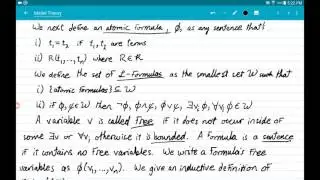 Model Theory
5:22 PM
We next define an atomic formula, φ, as any sentence that:
i) t₁=t₂ if t₁,t₂ are terms
ii) R(t₁,...,tₙ) where R∈R
We define the set of L-formulas as the smallest set W such that
i) {atomic formulas}⊆W
ii) if φ,ψ∈W then ¬φ, φ∧ψ, φ∨ψ, ∃vᵢφ, ∀vᵢφ∈W
A variable v is called Free if it does not occur inside
of some ∃v or ∀v; otherwise it is bounded. A formula is a sentence
if it contains no free variables. We write a Formula's free
variables as φ(v₁,...,vₙ). We give an inductive definition of